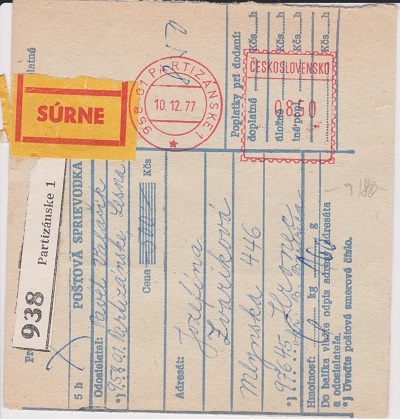 SÚRNE
958 01 PARTIZÁNSKE 1
10.12.77
Poplatky pri dodaní:
doplatné Kčs h
úložné Kčs h
iné popl. Kčs h
ČESKOSLOVENSKO
0850
938 Partizánske 1
5 h POŠTOVÁ SPRIEVODKA
Odosielateľ:
*) 958 01 Partizánske
Cena Kčs
Adresát: Jozefína
Zvaríková
Mlynská 446
*) 976 45 Hronec
Hmotnosť: kg g
Do balíka vložte odpis adresy adresáta
a odosielateľa. *) Uveďte poštové smerové číslo.